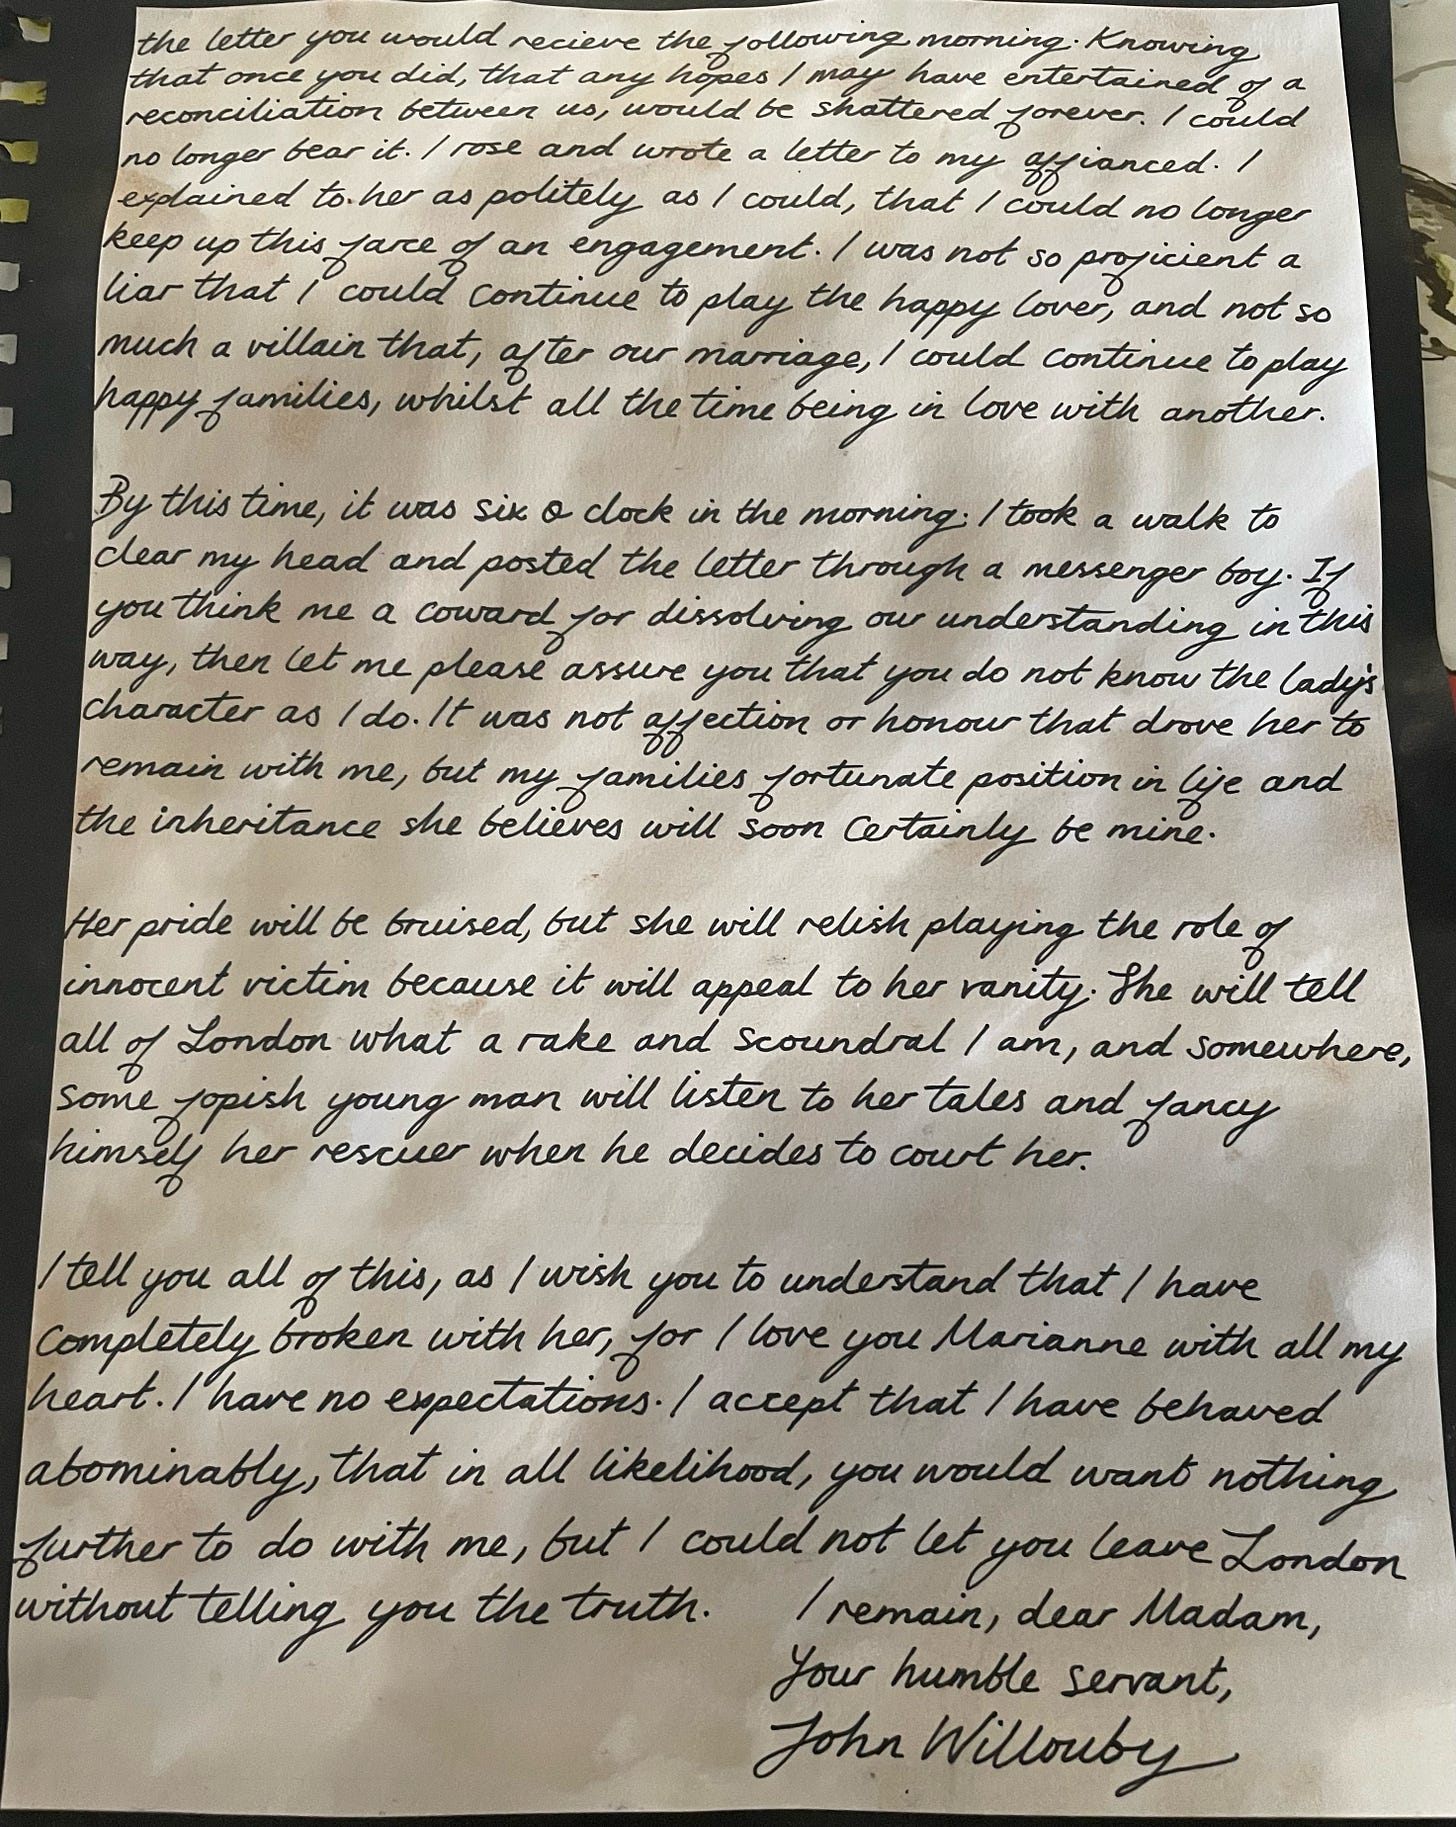 the letter you would recieve the following morning. Knowing
that once you did, that any hopes I may have entertained of a
reconciliation between us, would be shattered forever. I could
no longer bear it. I rose and wrote a letter to my affianced. I
explained to her as politely as I could, that I could no longer
keep up this farce of an engagement. I was not so proficient a
liar that I could continue to play the happy lover, and not so
much a villain that, after our marriage, I could continue to play
happy families, whilst all the time being in love with another.
By this time, it was six o clock in the morning. I took a walk to
clear my head and posted the letter through a messenger boy. If
you think me a coward for dissolving our understanding in this
way, then let me please assure you that you do not know the lady's
character as I do. It was not affection or honour that drove her to
remain with me, but my families fortunate position in life and
the inheritance she believes will soon certainly be mine.
Her pride will be bruised, but she will relish playing the role of
innocent victim because it will appeal to her vanity. She will tell
all of London what a rake and scoundral I am, and somewhere,
some fopish young man will listen to her tales and fancy
himself her rescuer when he decides to court her.
I tell you all of this, as I wish you to understand that I have
completely broken with her, for I love you Marianne with all my
heart. I have no expectations. I accept that I have behaved
abominably, that in all likelihood, you would want nothing
further to do with me, but I could not let you leave London
without telling you the truth. I remain, dear Madam,
Your humble servant,
John Willouby